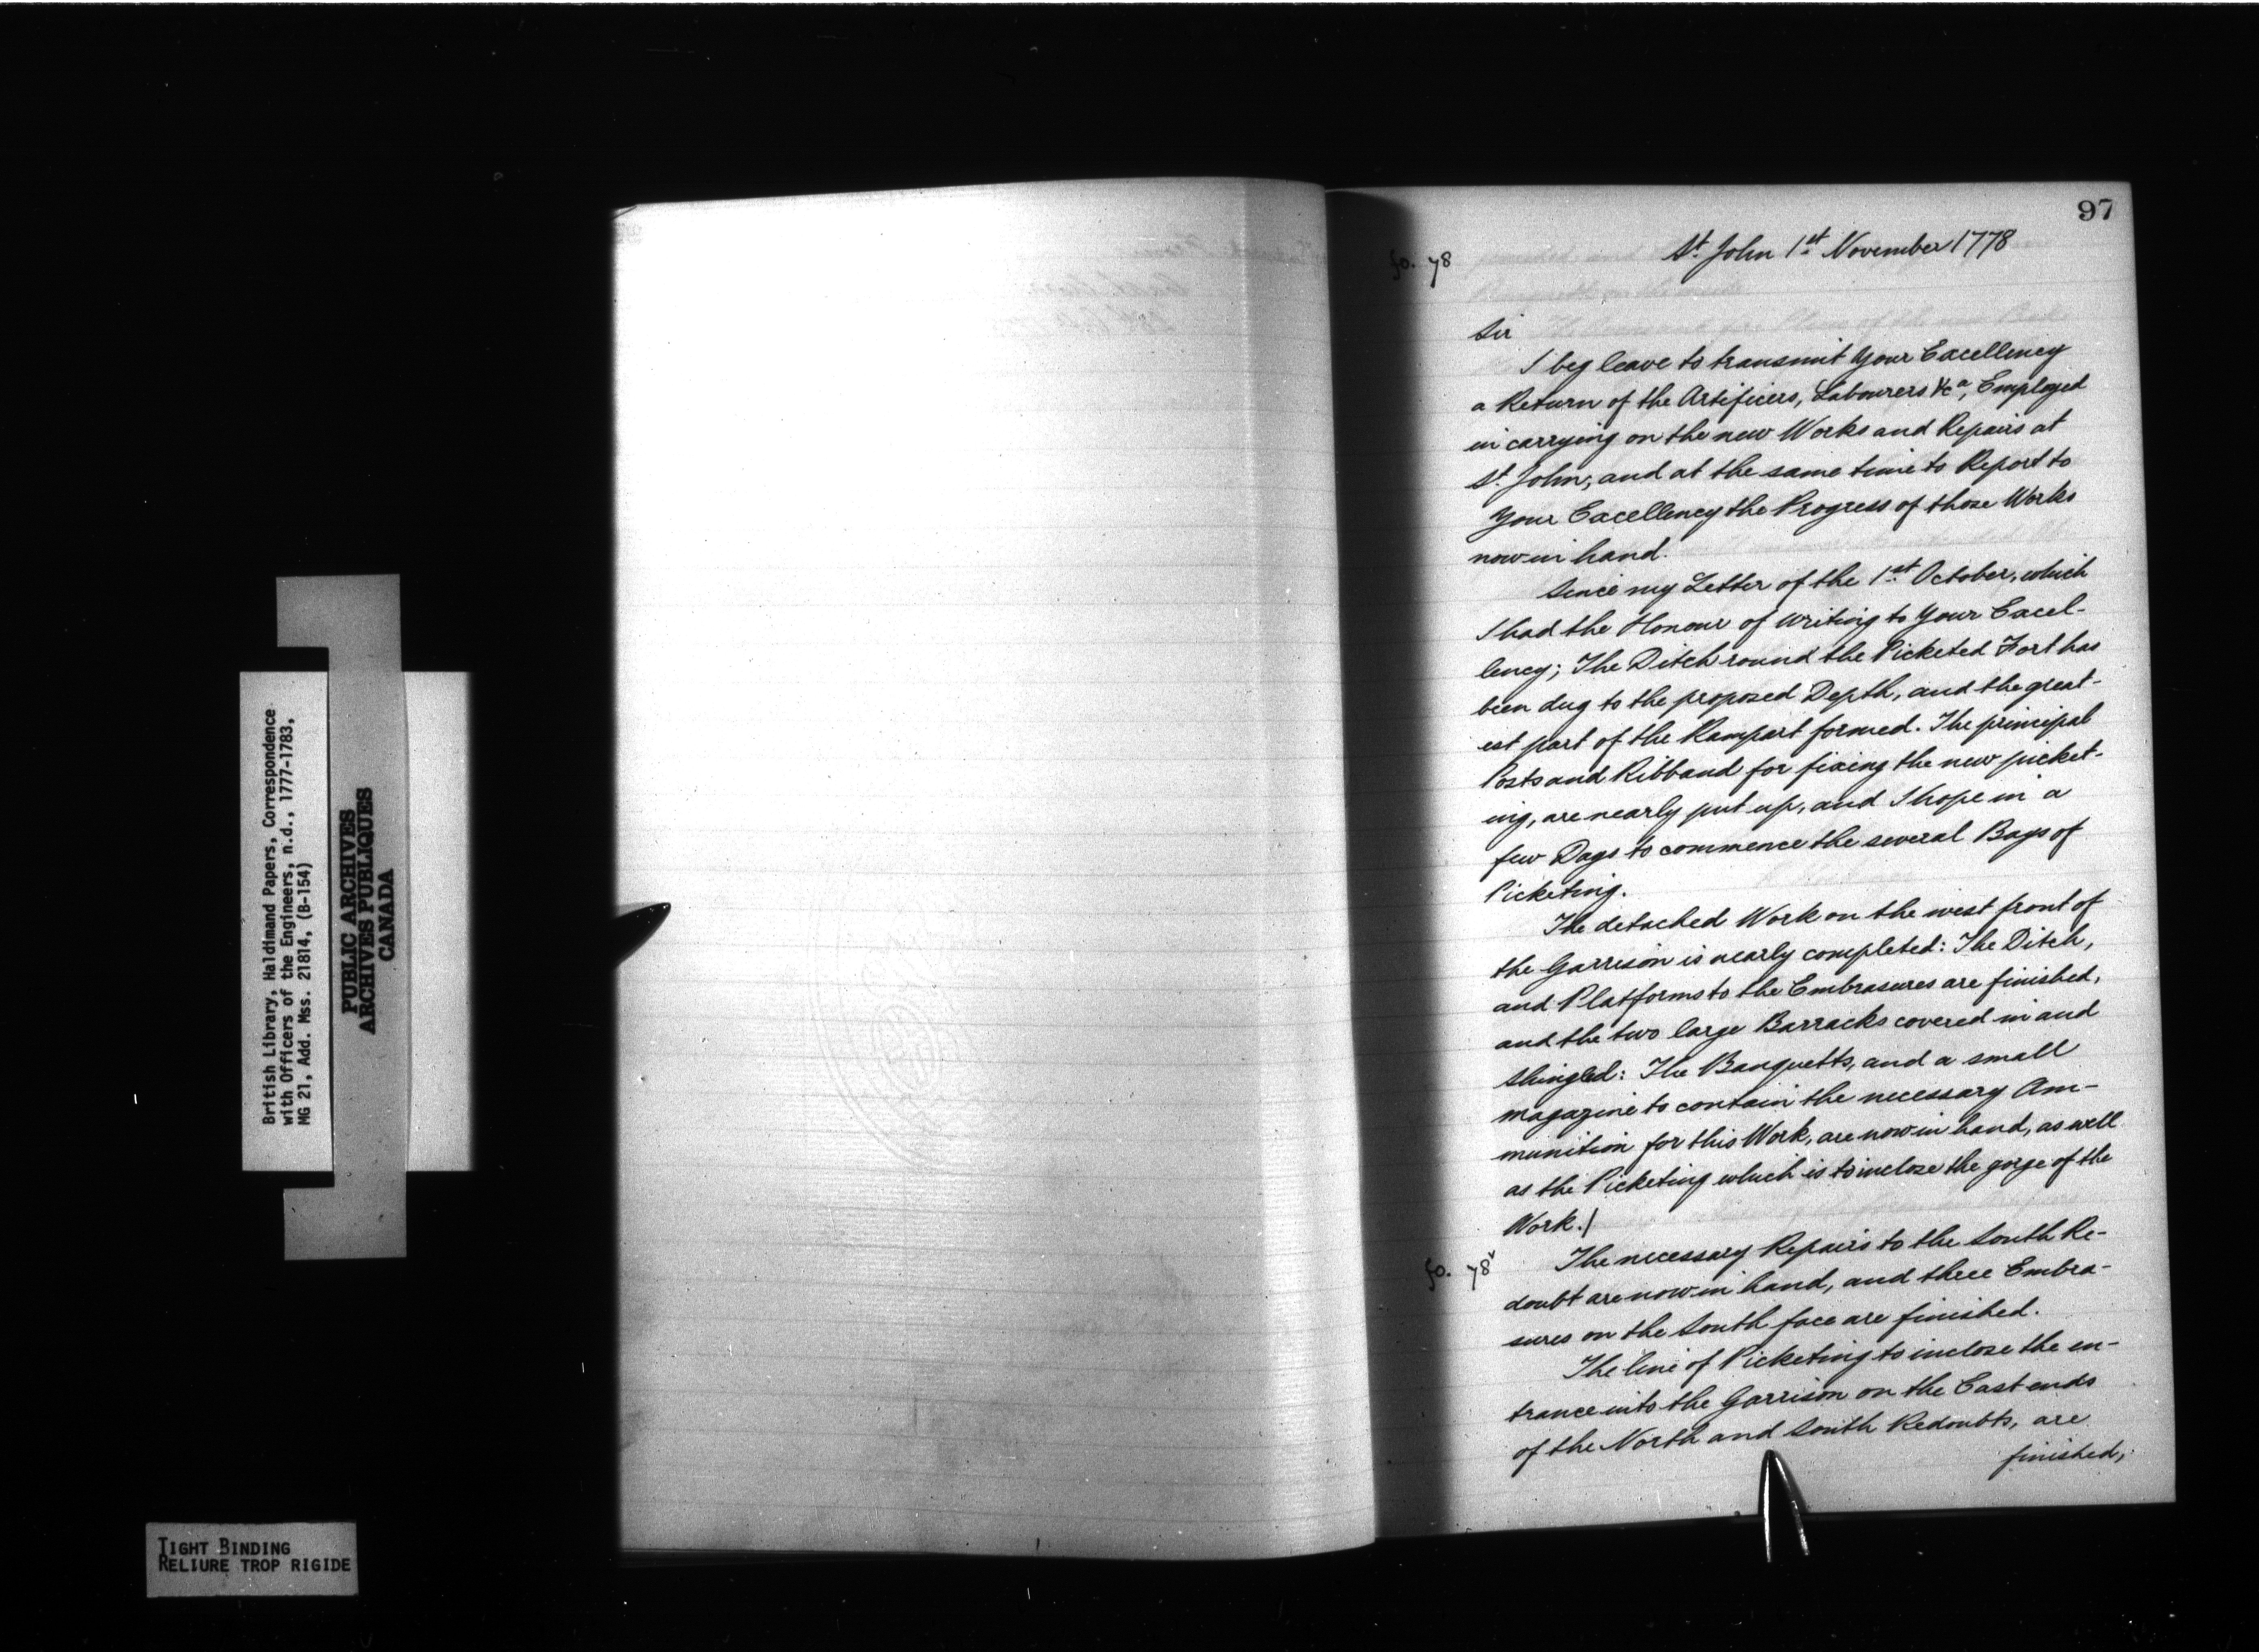 British Library, Haldimand Papers, Correspondence
with Officers of the Engineers, n.d., 1777-1783,
MG 21, Add. Mss. 21814, (B-154)
PUBLIC ARCHIVES
ARCHIVES PUBLIQUES
CANADA
TIGHT BINDING
RELIURE TROP RIGIDE
97
fo. 78
St. John 1st November 1778
Sir
I beg leave to transmit Your Excellency
a Return of the Artificers, Labourers &ca, Employed
in carrying on the new Works and Repairs at
St. John, and at the same time to Report to
Your Excellency the Progress of those Works
now in hand.
Since my Letter of the 1st October, which
I had the Honour of writing to Your Excel-
lency; The Ditch round the Picketed Fort has
been dug to the proposed Depth, and the great-
est part of the Rampart formed. The principal
Posts and Ribband for fixing the new picket-
ing, are nearly put up, and I hope in a
few Days to commence the several Bays of
Picketing.
The detached Work on the west front of
the Garrison is nearly completed: The Ditch,
and Platforms to the Embrasures are finished,
and the two large Barracks covered in and
Shingled: The Banquetts, and a small
magazine to contain the necessary Am-
munition for this Work, are now in hand, as well
as the Picketing which is to inclose the gorge of the
Work./
fo. 78v
The necessary Repairs to the South Re-
doubt are now in hand, and three Embra-
sures on the South face are finished.
The line of Picketing to inclose the en-
trance into the Garrison on the East ends
of the North and South Redoubts, are
finished,